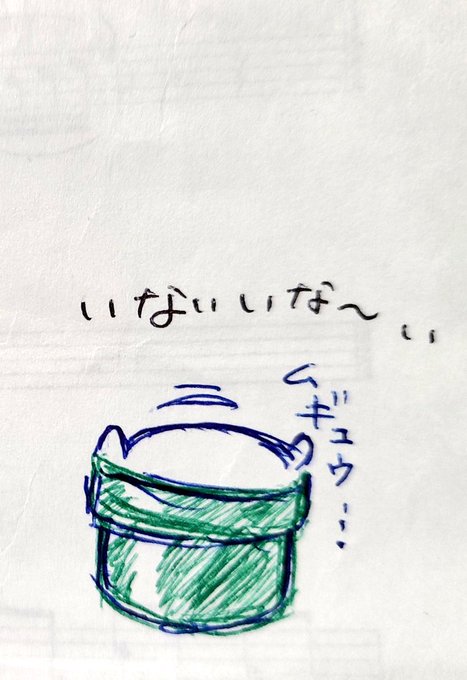 いないいな〜い
ムギュウ…